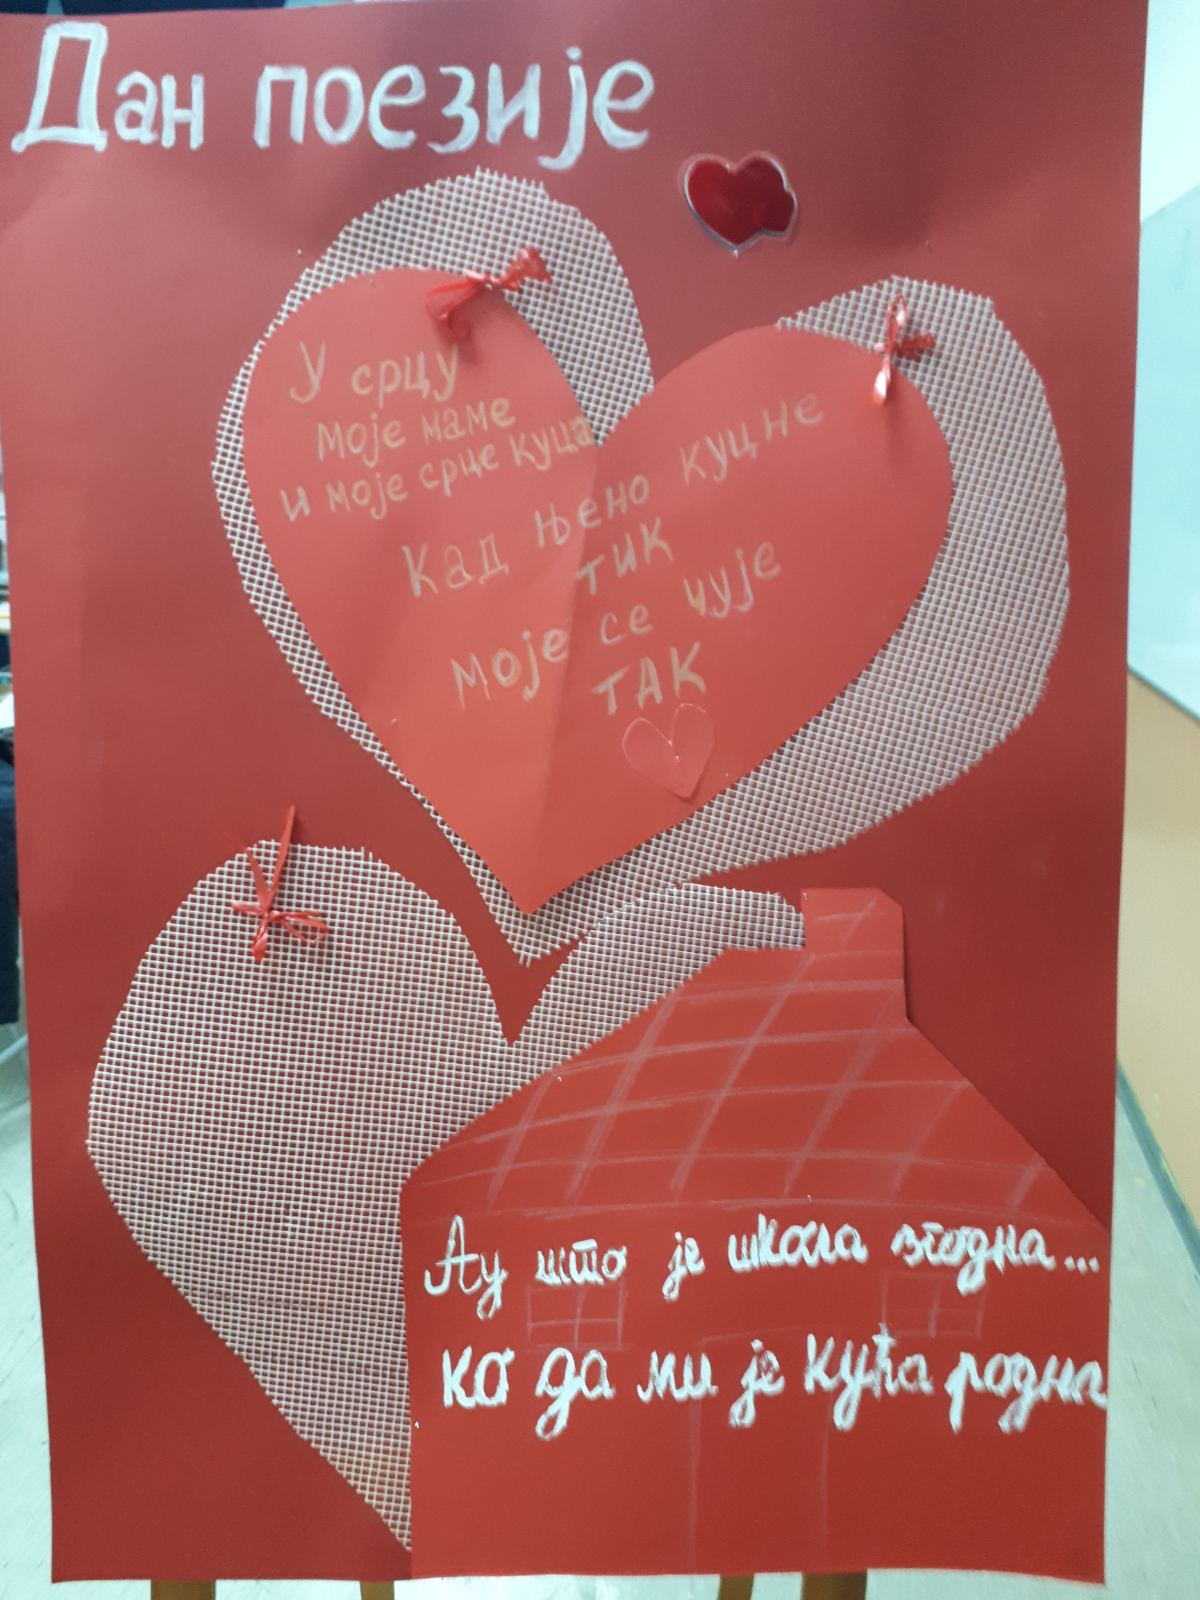 Дан поезије
У срцу
моје маме
и моје срце куца
Кад њено куцне
ТИК
Моје се чује
ТАК
Ау што је школа згодна...
ко да ми је кућа родна